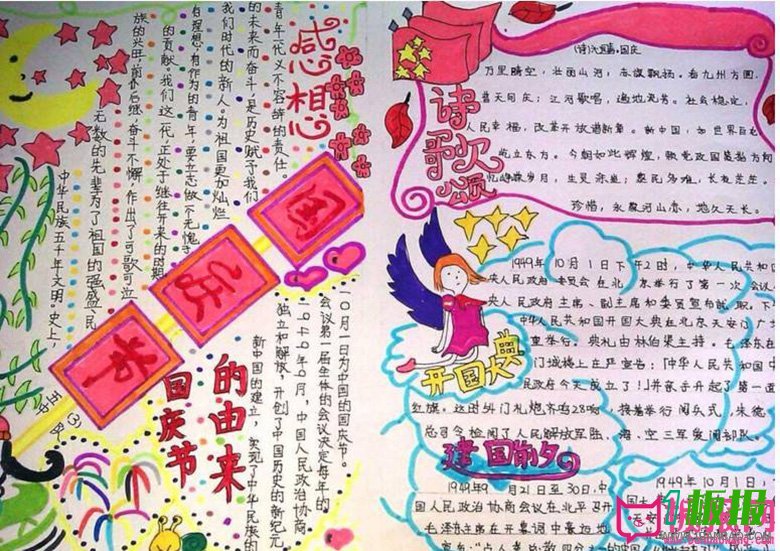 感想
青年一代义不容辞的责任。
的未来而奋斗,是历史赋于我们
我们时代的新人,为祖国更加灿烂
有理想,有作为的青年,要立志做不无愧于
的贡献。我们这一代,正处于继往开来的时期
族的兴旺,前卦后继,奋斗不懈,作出了可歌可泣
无数的先辈为了祖国的强盛、民
中华民族五千年文明。史上,
国
庆
节
五(3)
国庆节
的由来
10月1日为中国的国庆节。
会议第一届全体的会议决定每年的
中国人民政治协商
独立和解放,开创了中国历史的新纪元
新中国的建立,实现了中华民族的
诗歌颂
(诗)沁园春·国庆
万里晴空,壮丽山河,赤旗飘扬。看九州方圆,
普天同庆;江河歌唱,遍地芬芳。社会稳定,
人民幸福,改革开放谱新篇。新中国,如世界巨龙
屹立东方。今朝如此辉煌,
忆峥嵘岁月,生灵涂炭;黎民多难,长夜茫茫。
珍惜,永泉河山恋,地久天长。
开国大典
1949年10月1日下午2时,中华人民共和国
央人民政府委员会在北京举行了第一次会议
央人民政府主席、副主席和委员宣布就职。下
中华人民共和国开国大典在北京天安门广
举行。典礼由林伯渠主持。毛泽东在
门城楼上庄严宣告:「中华人民共和国中
民政府今天成立了!」并亲手升起了第一面
红旗。这时外门礼炮齐鸣28响,接着举行阅兵式,朱德
总司令检阅了人民解放军陆、海、空三军受阅部队。
建国前夕
1949年9月21日至30日,中
国人民政治协商会议在北平召开
毛泽东主席在开幕词中豪迈地
1949年10月1日,
板报